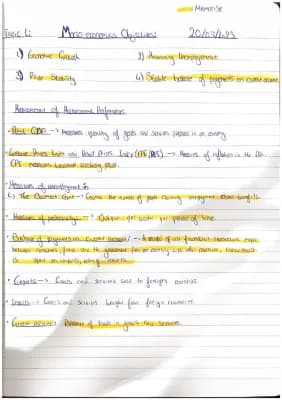 Memorise
Topic 1: Macro-economics Objectives: 20/03/2023
1) Economic Growth 2) Minimising Unemployment
3) Price Stability 4) Stable balance of payments on current account
Measurement of Macroeconomic Performance
Real GDP --> Measures quantity of goods and services produced in an economy
Consumer Prices Index and Retail Prices Index (CPI/RPI) --> Measures of inflation in the UK.
CPI measures
Measures of unemployment is
1. The Claimant Count --> Counts the number of people claiming unemployment related benefits.
Measure of productivity --> Output per worker per period of time.
Balance of payments on current account: -->
between
spent on imports
Exports --> Goods and services sold to foreign countries.
Imports --> Goods and services bought from foreign countries.
Current account: Balance of trade in goods and services.